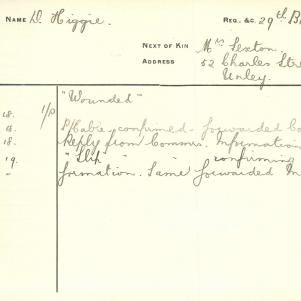 NAME D. Higgie. REG. &C. 29th B
NEXT OF KIN Mrs Sexton.
ADDRESS 52 Charles Str
Unley.
"Wounded"
18. 1/P
P/Cable confirmed - forwarded Co
18. Reply from Commrs. Information
19. " 14th " confirming
" formation. Same forwarded